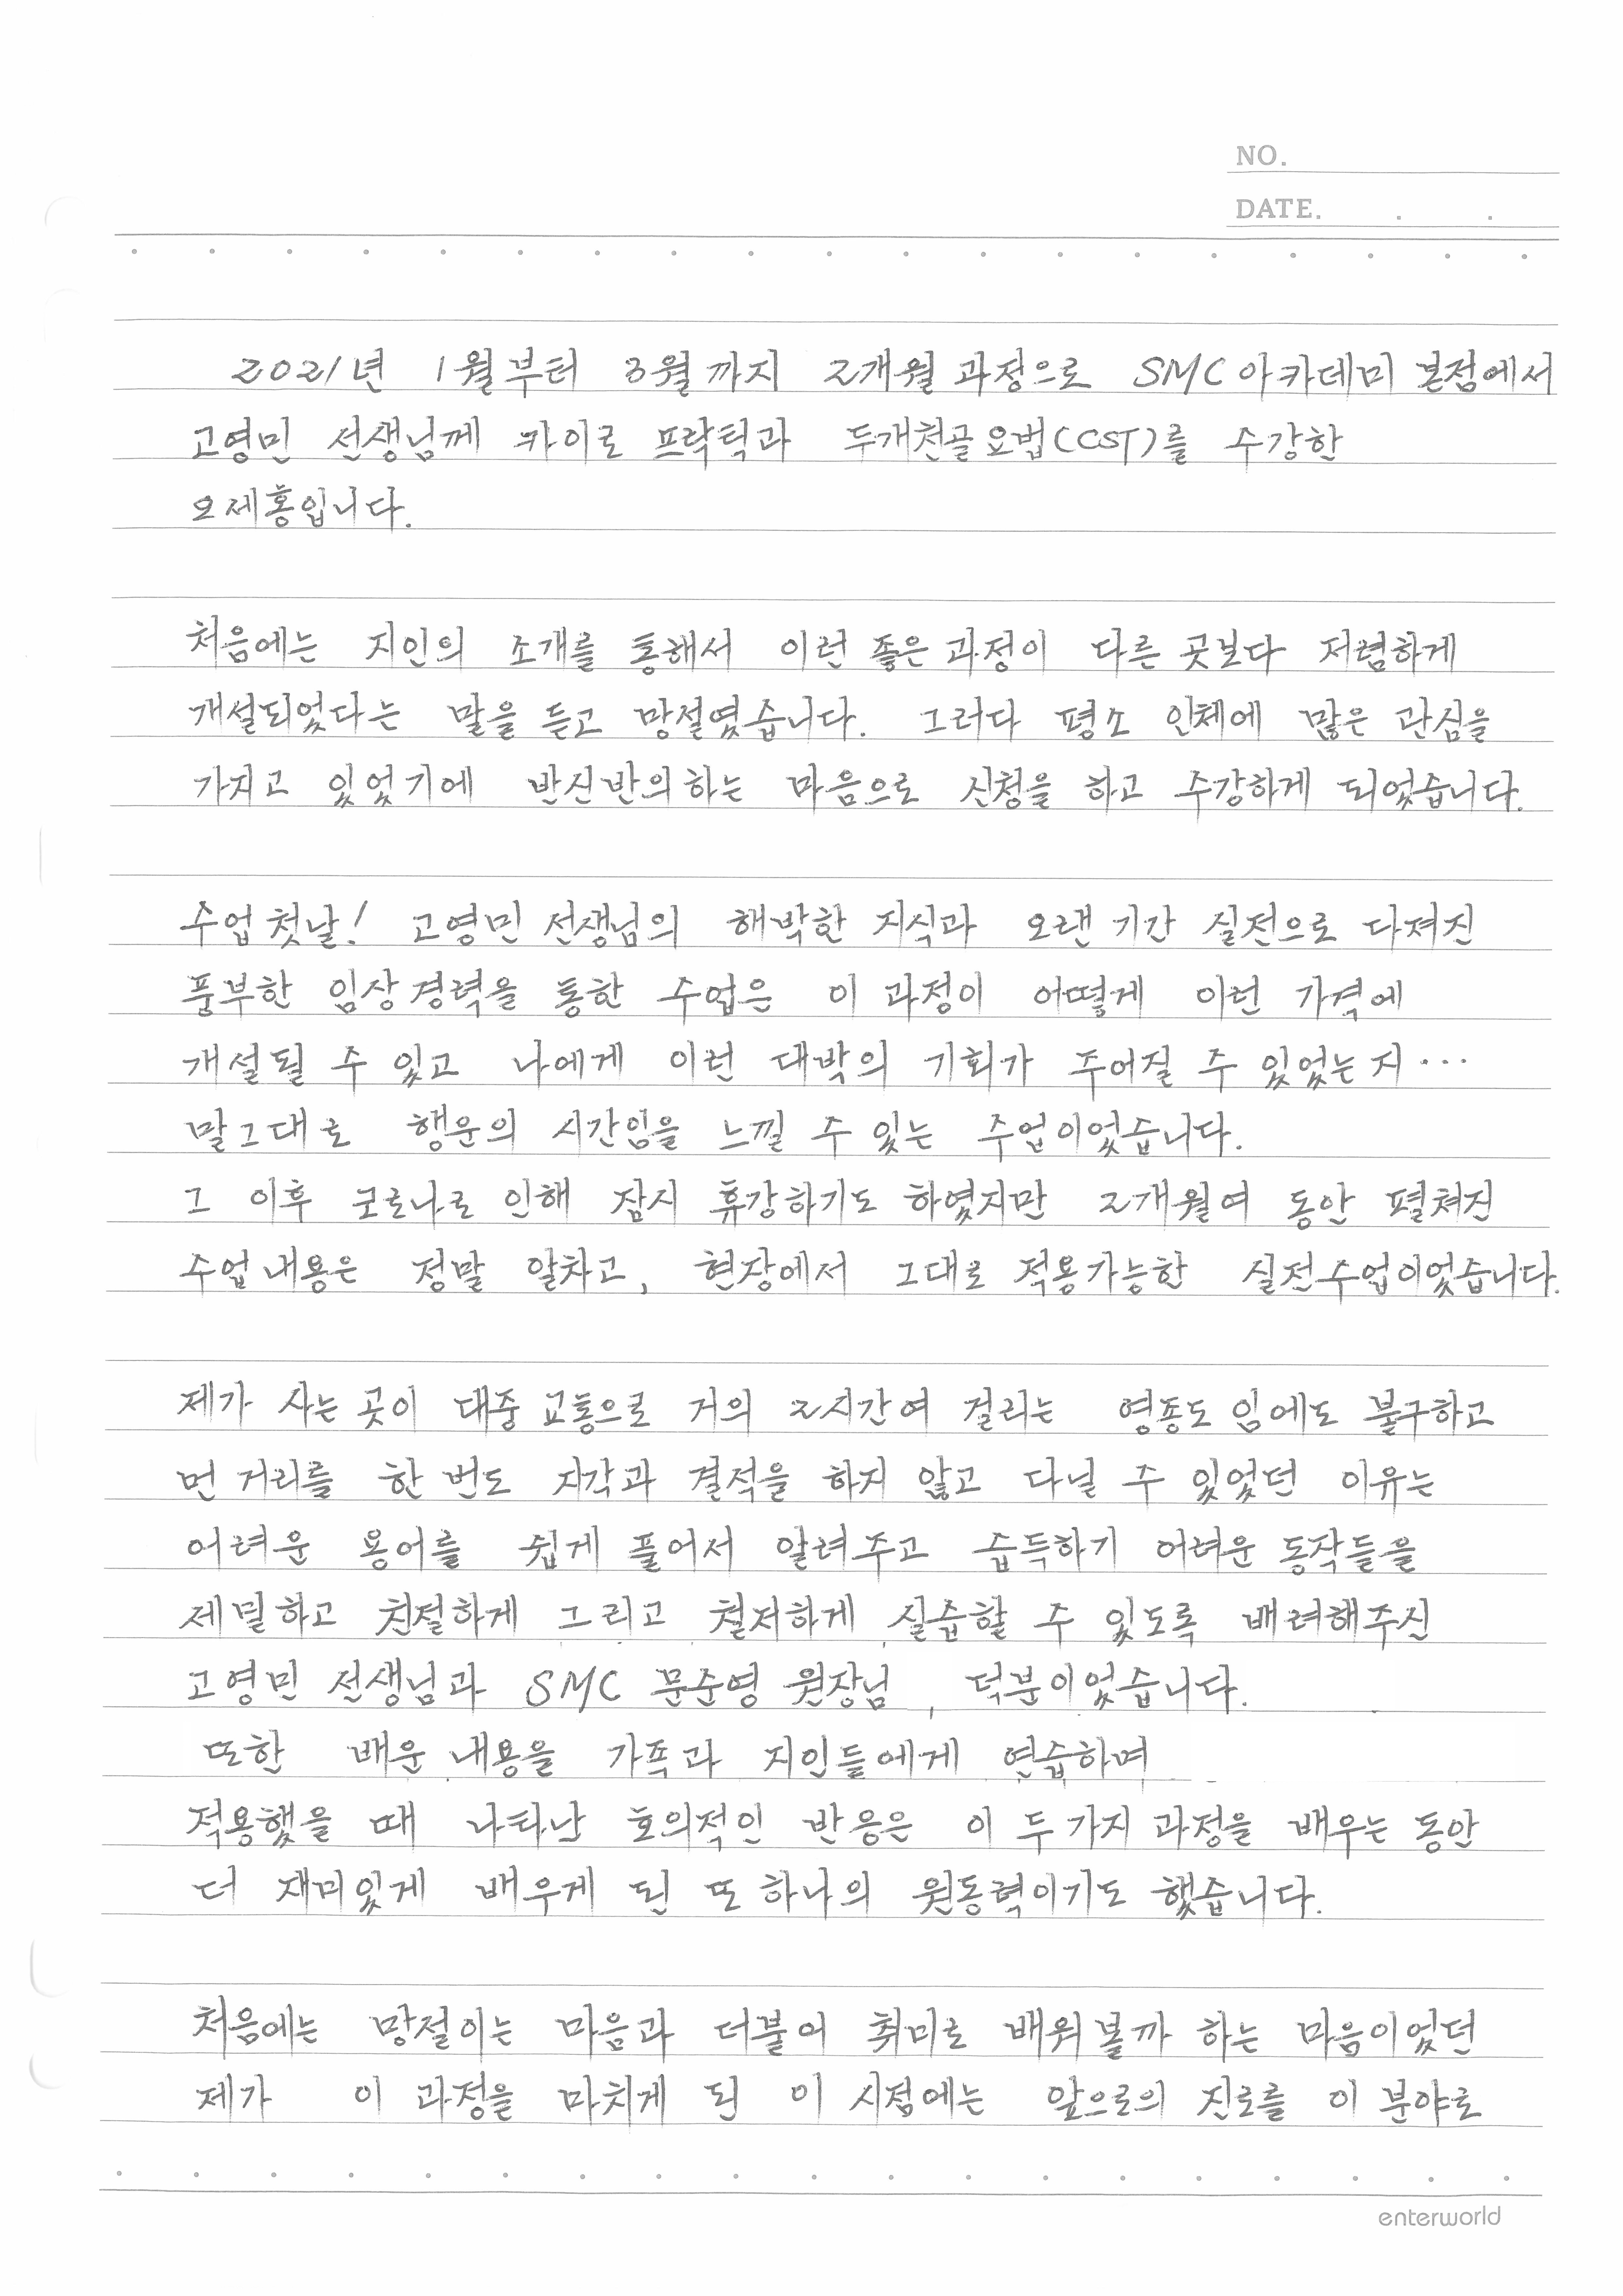 NO.
DATE. . .
2021년 1월부터 3월까지 2개월 과정으로 SMC아카데미 본점에서
고영민 선생님께 카이로 프락틱과 두개천골요법(CST)를 수강한
오제홍입니다.
처음에는 지인의 소개를 통해서 이런 좋은 과정이 다른 곳보다 저렴하게
개설되었다는 말을 듣고 망설였습니다. 그러다 평소 인체에 많은 관심을
가지고 있었기에 반신반의하는 마음으로 신청을 하고 수강하게 되었습니다.
수업 첫날! 고영민 선생님의 해박한 지식과 오랜 기간 실전으로 다져진
풍부한 임상경력을 통한 수업은 이 과정이 어떻게 이런 가격에
개설될 수 있고 나에게 이런 대박의 기회가 주어질 수 있었는지...
말그대로 행운의 시간임을 느낄 수 있는 수업이었습니다.
그 이후 코로나로 인해 잠시 휴강하기도 하였지만 2개월여 동안 펼쳐진
수업내용은 정말 알차고, 현장에서 그대로 적용가능한 실전수업이었습니다.
제가 사는 곳이 대중교통으로 거의 2시간여 걸리는 영종도임에도 불구하고
먼 거리를 한번도 지각과 결석을 하지 않고 다닐 수 있었던 이유는
어려운 용어를 쉽게 풀어서 알려주고 습득하기 어려운 동작들을
세밀하고 친절하게 그리고 철저하게 실습할 수 있도록 배려해주신
고영민 선생님과 SMC 문준영 원장님, 덕분이었습니다.
또한 배운 내용을 가족과 지인들에게 연습하며
적용했을 때 나타난 호의적인 반응은 이 두가지 과정을 배우는 동안
더 재미있게 배우게 된 또 하나의 원동력이기도 했습니다.
처음에는 망설이는 마음과 더불어 취미로 배워볼까 하는 마음이었던
제가 이 과정을 마치게 된 이 시점에는 앞으로의 진로를 이 분야로
enterworld